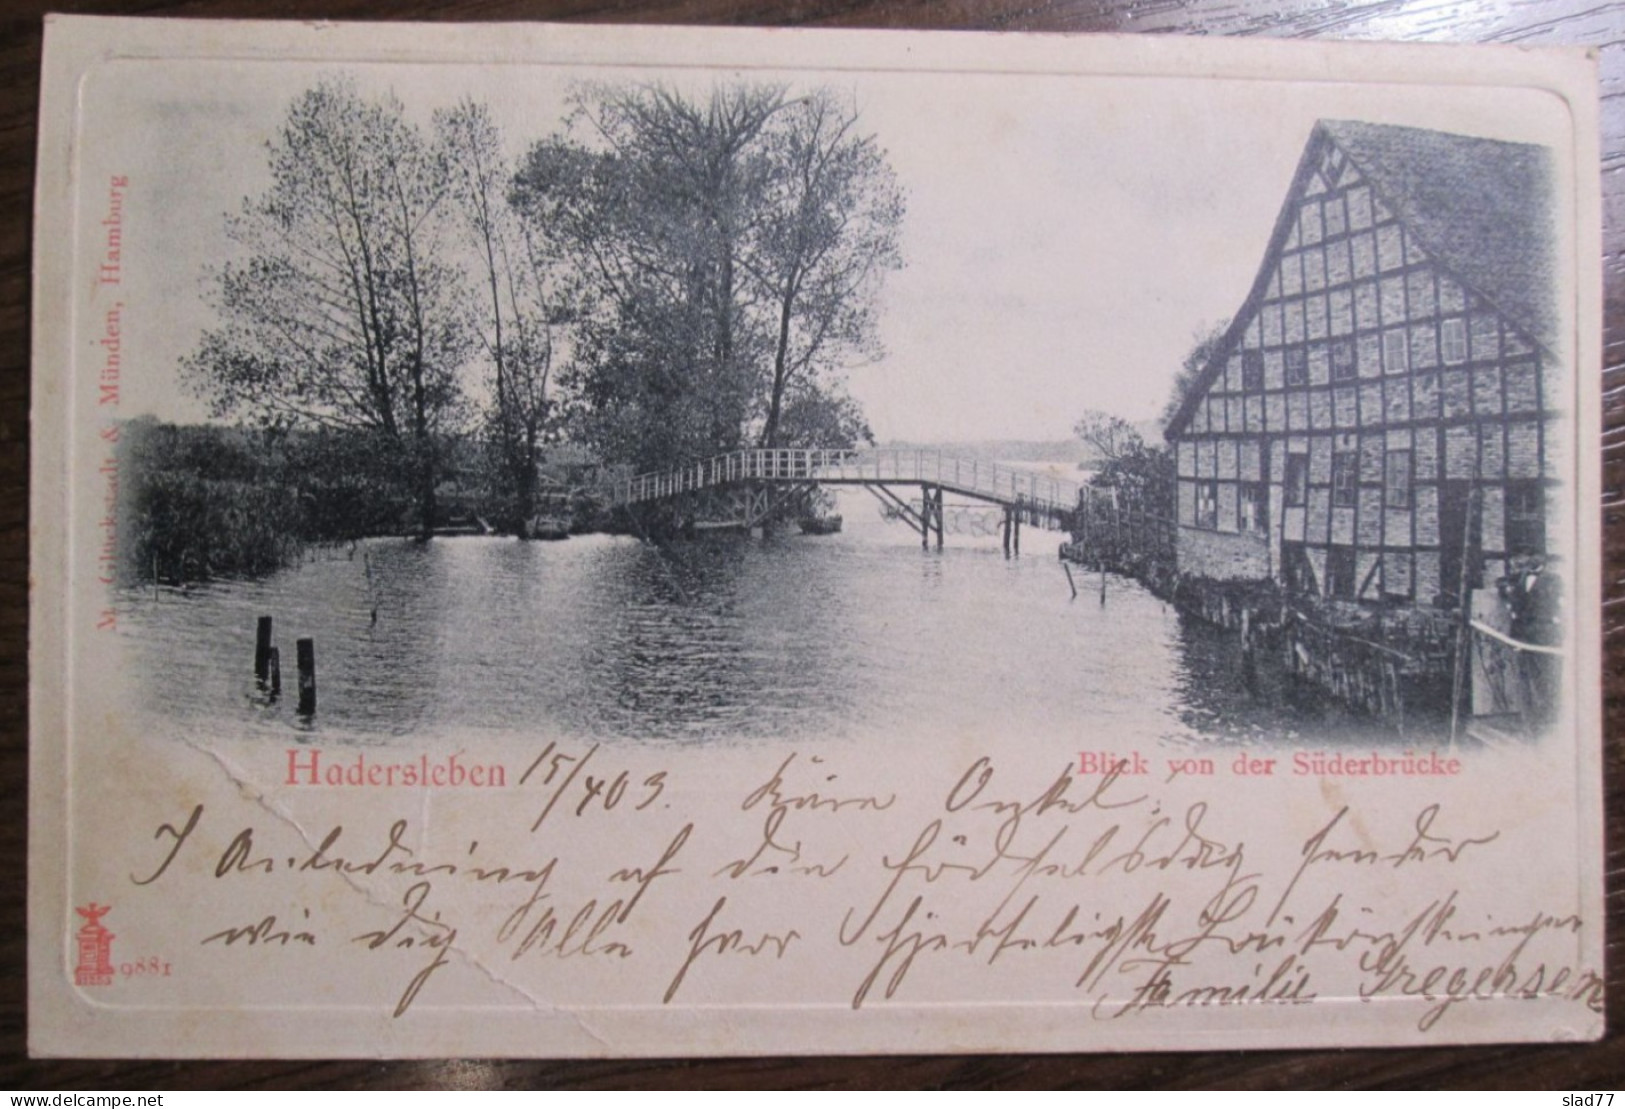 M. Glückstadt & Münden, Hamburg
Hadersleben 15/4 03. Kära Onkel:
Blick von der Süderbrücke
I Anledning af din födselsdag sender
wie dig Alle hvor hjerteligste Lükönskninger
Familie Gregersen
9881
slad77